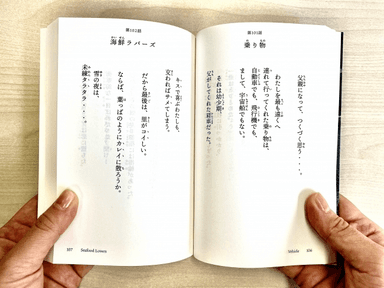 第101話
乗り物
父親になって、つくづく思う・・・・。
わたしを最も遠くへ
連れて行ってくれた乗り物は、
自動車でも、飛行機でも、
まして、宇宙船でもない。
それは幼少期、
父がしてくれた肩車だった。
Vehicle 106
第102話
海鮮ラバーズ
キスで喜ぶわたしも、
交わればサメてしまう。
だから最後は、里がコイしい。
ならば、葉っぱのようにカレイに散ろうか。
雪の夜は、
未練タラタラ・・・・。
107 Seafood Lovers